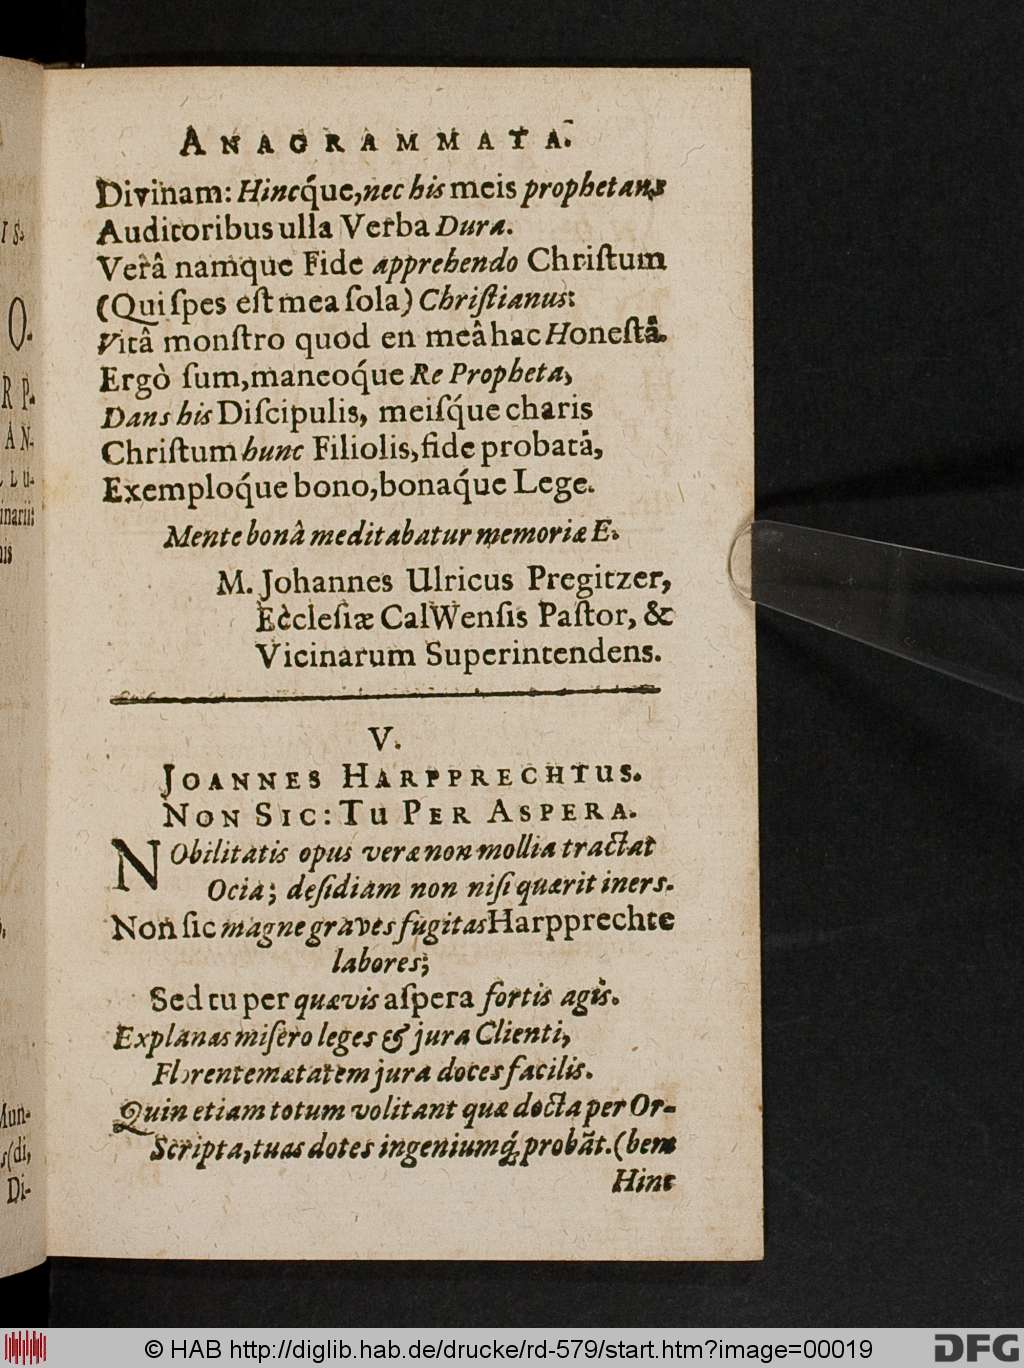 ANAGRAMMATA.
Divinam: Hincq́ue, nec his meis prophetans
Auditoribus ulla Verba Dura.
Verâ namque Fide apprehendo Chriſtum
(Qui ſpes eſt mea ſola) Chriſtianus:
Vitâ monſtro quod en meâ hac Honeſtâ.
Ergò ſum, maneoq́ue Re Propheta,
Dans his Diſcipulis, meiſq́ue charis
Chriſtum hunc Filiolis, fide probatâ,
Exemploq́ue bono, bonaq́ue Lege.
Mente bonâ meditabatur memoriæ E.
M. Johannes Ulricus Pregitzer,
Eccleſiæ CalWenſis Paſtor, &
Vicinarum Superintendens.
V.
JOANNES HARPPRECHTUS.
NON SIC: TU PER ASPERA.
NObilitatis opus veræ non mollia tractat
Ocia; deſidiam non niſi quærit iners.
Non ſic magne graves fugitas Harpprechte
labores;
Sed tu per quævis aſpera fortis agis.
Explanas miſero leges & jura Clienti,
Florentem ætatem jura doces facilis.
Quin etiam totum volitant quæ docta per Or-
Scripta, tuas dotes ingeniumq́; probāt. (bem
Hinc
IS.
O.
R P.
AN-
LLU-
inarii;
nis
Mun-
s(di,
Di-
© HAB http://diglib.hab.de/drucke/rd-579/start.htm?image=00019
DFG